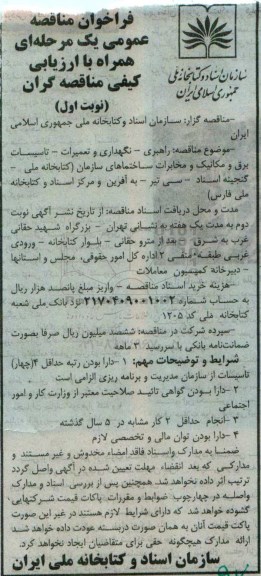 فراخوان مناقصه
عمومی یک مرحله‌ای
همراه با ارزیابی
کیفی مناقصه گران
(نوبت اول)
سازمان اسناد و کتابخانه ملی
جمهوری اسلامی ایران
-مناقصه گزار: سازمان اسناد وکتابخانه ملی جمهوری اسلامی
ایران
-موضوع مناقصه: راهبری - نگهداری و تعمیرات - تاسیسات
برق و مکانیک و مخابرات ساختماهای سازمان (کتابخانه ملی -
گنجینه اسناد - سی تیر - به آفرین و مرکز اسناد و کتابخانه
ملی فارس)
مدت و محل دریافت اسناد مناقصه: از تاریخ نشر آگهی نوبت
دوم به مدت یک هفته به نشانی تهران - بزرگراه شهید حقانی
غرب به شرق - بعد از مترو حقانی - بلوار کتابخانه - ورودی
غربی طبقه منفی ۲ اداره کل امور حقوقی، مجلس و استانها
- دبیرخانه کمیسیون معاملات
-هزینه خرید اسناد مناقصه: - واریز مبلغ پانصد هزار ریال
به حساب شماره ۲۱۷۰۴۰۹۰۰۱۰۰۲ نزد بانک ملی شعبه
کتابخانه ملی کد ۱۲۰۵
-سپرده شرکت در مناقصه: ششصد میلیون ریال صرفا بصورت
ضمانت‌نامه بانکی با سررسید ۳ ماهه
شرایط و توضیحات مهم: ۱- دارا بودن رتبه حداقل ۴(چهار)
تاسیسات از سازمان مدیریت و برنامه ریزی الزامی است
۲-دارا بودن گواهی تائید صلاحیت معتبر از وزارت کار و امور
اجتماعی
۳-انجام حداقل ۲ کار مشابه در ۵ سال گذشته
۴- دارا بودن توان مالی و تخصصی لازم
ضمنا به مدارک واسناد فاقد امضاء مخدوش و غیر مستند و
مدارکی که بعد انقضاء مهلت تعیین شده در آگهی واصل گردد
ترتیب اثر داده نخواهد شد. همچنین پس از بررسی اسناد و مدارک
واصله در چهارچوب ضوابط و مقررات، پاکات قیمت شرکتهایی
گشوده خواهد شد که دارای شرایط لازم هستند در غیر این صورت
پاکت قیمت آنان به همان صورت دربسته عودت داده خواهد شد
ارائه مدارک هیچگونه حقی برای متقاضیان ایجاد نخواهد کرد.
سازمان اسناد و کتابخانه ملی ایران